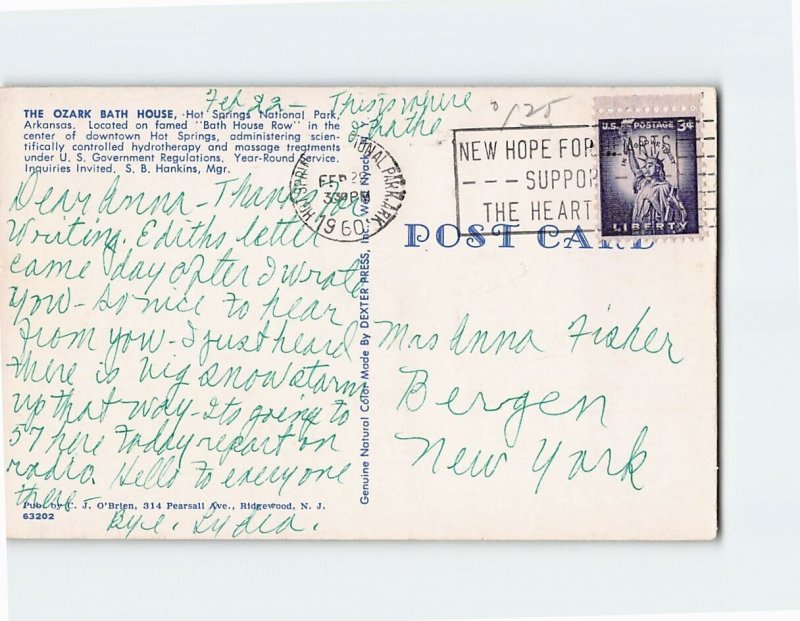 THE OZARK BATH HOUSE, Hot Springs National Park,
Arkansas. Located on famed "Bath House Row" in the
center of downtown Hot Springs, administering scien-
tifically controlled hydrotherapy and massage treatments
under U. S. Government Regulations. Year-Round Service.
Inquiries Invited. S. B. Hankins, Mgr.
Feb 22 - This is where
I bathe
Dear Anna - Thank you
Writing. Ediths letter
came day after I wrote
you - so nice to hear
from you - I just heard
there is big snow starm
up that way - Its going to
57 here today repart on
radio. Hello to everyone
there -
Bye. Lydia.
Pub. by C. J. O'Brien, 314 Pearsall Ave., Ridgewood, N. J.
63202
Genuine Natural Color Made By DEXTER PRESS, Inc., West Nyack,
125
FEB
PM
1960
NATIONAL PARK, ARK
NEW HOPE FOR
SUPPOR
THE HEART
U.S. POSTAGE 3¢
LIBERTY
POST CARD
Mrs Anna Fisher
Bergen
New York